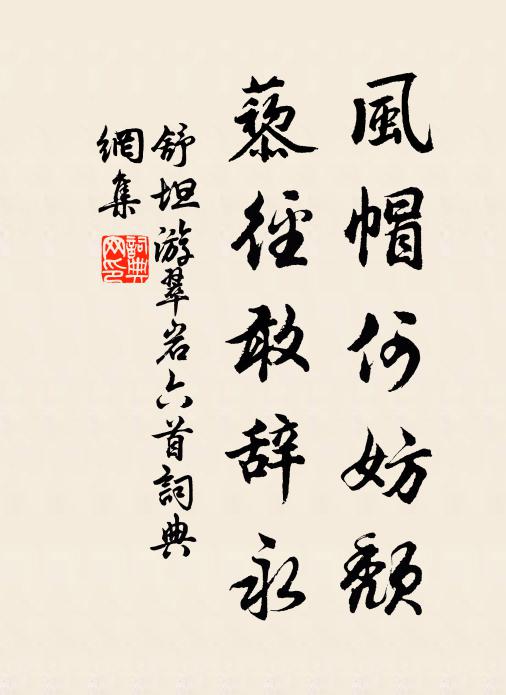 風帽何妨頹
藜徑敢辞永
舒坦游翠岩六首詞典
網集
詞典网印